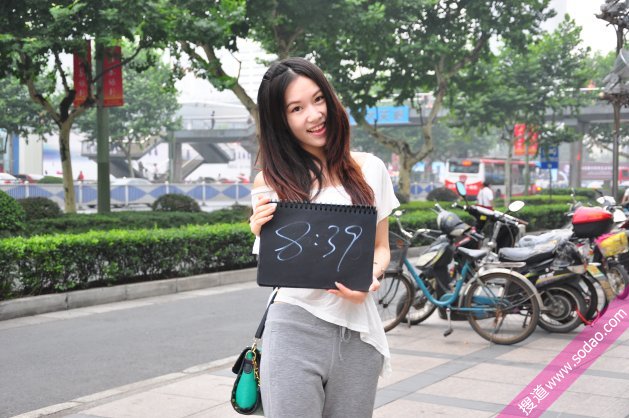 8:39
搜道www.sodao.com